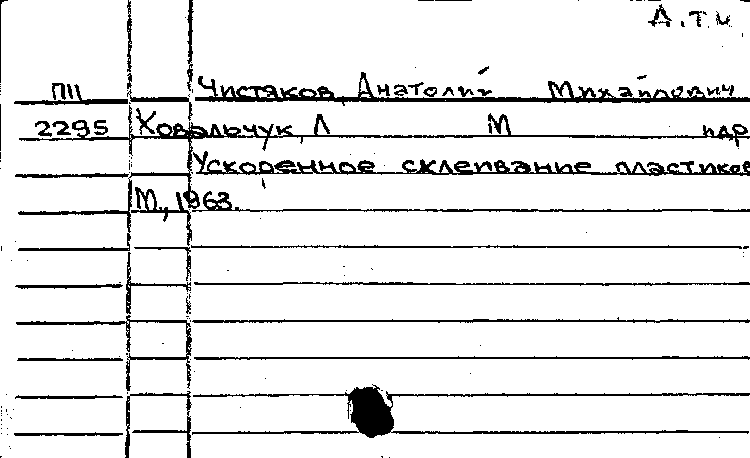 А.тм
ПII Чистяков, Анатолий Михайлович
2295 Ковальчук, Л М и др
Ускоренное склеивание пластиков
М., 1963.